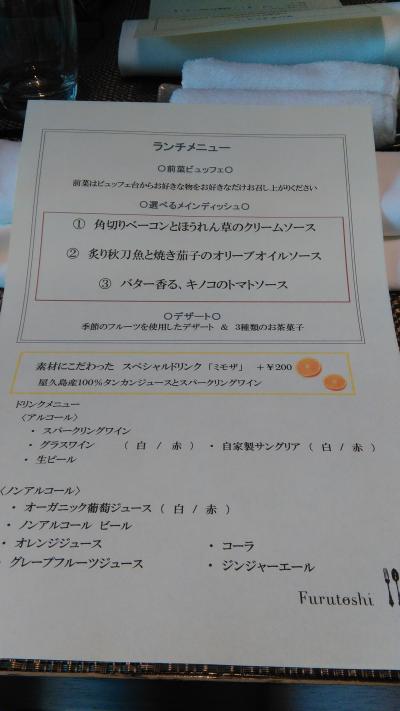 ランチメニュー
○前菜ビュッフェ○
前菜はビュッフェ台からお好きな物をお好きなだけお召し上がりください
○選べるメインディッシュ○
① 角切りベーコンとほうれん草のクリームソース
② 炙り秋刀魚と焼き茄子のオリーブオイルソース
③ バター香る、キノコのトマトソース
○デザート○
季節のフルーツを使用したデザート & 3種類のお茶菓子
素材にこだわった スペシャルドリンク 「ミモザ」 +¥200
屋久島産100%タンカンジュースとスパークリングワイン
ドリンクメニュー
〈アルコール〉
・ スパークリングワイン
・ グラスワイン ( 白 / 赤 ) ・ 自家製サングリア ( 白 / 赤 )
・ 生ビール
〈ノンアルコール〉
・ オーガニック葡萄ジュース ( 白 / 赤 )
・ ノンアルコール ビール
・ オレンジジュース ・ コーラ
・ グレープフルーツジュース ・ ジンジャーエール
Furutoshi